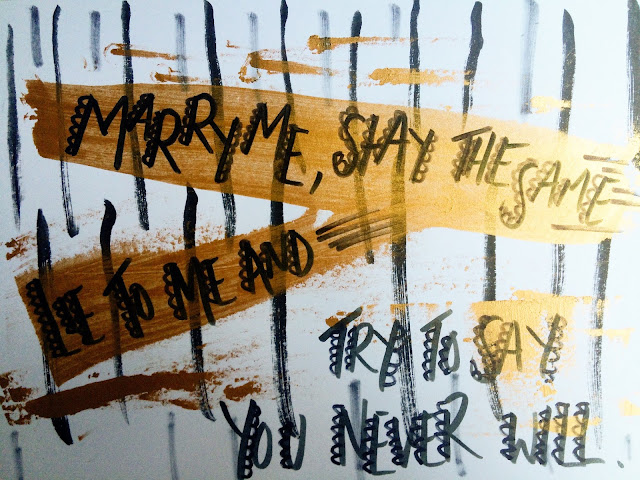 MARRY ME, STAY THE SAME
LIE TO ME AND
TRY TO SAY
YOU NEVER WILL.